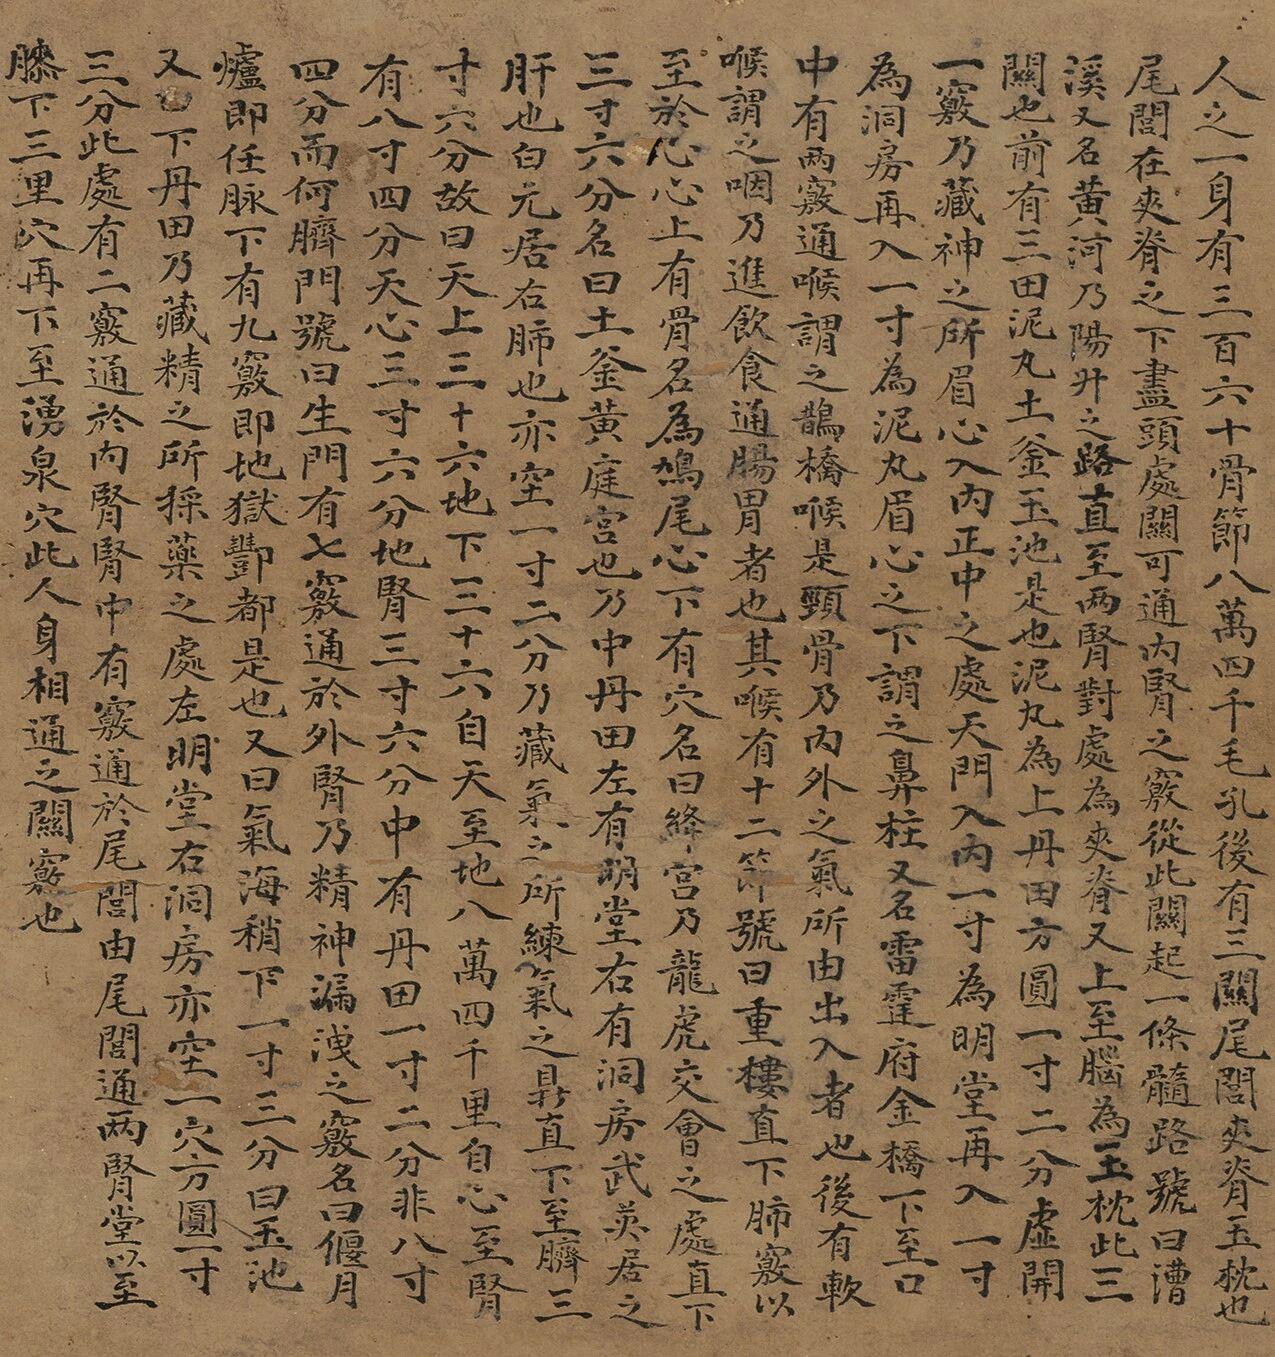 人之一身有三百六十骨節八萬四千毛孔後有三關尾閭夾脊玉枕也
尾閭在夾脊之下盡頭處關可通內腎之竅從此關起一條髓路號曰漕
溪又名黃河乃陽升之路直至两腎對處為夾脊又上至腦為玉枕此三
關也前有三田泥丸土釜玉池是也泥丸為上丹田方圓一寸二分虛開
一竅乃藏神之所眉心入內正中之處天門入內一寸為明堂再入一寸
為洞房再入一寸為泥丸眉心之下謂之鼻柱又名雷霆府金橋下至口
中有两竅通喉謂之鵲橋喉是頸骨乃內外之氣所由出入者也後有軟
喉謂之咽乃進飲食通腸胃者也其喉有十二節號曰重樓直下肺竅以
至於心心上有骨名為鳩尾心下有穴名曰絳宮乃龍虎交會之處直下
三寸六分名曰土釜黃庭宮也乃中丹田左有明堂右有洞房武英居之
肝也白元居右肺也亦空一寸二分乃藏氣之所練氣之鼎直下至臍三
寸六分故曰天上三十六地下三十六自天至地八萬四千里自心至腎
有八寸四分天心三寸六分地腎三寸六分中有丹田一寸二分非八寸
四分而何臍門號曰生門有七竅通於外腎乃精神漏洩之竅名曰偃月
爐即任脉下有九竅即地獄酆都是也又曰氣海稍下一寸三分曰玉池
又曰下丹田乃藏精之所採藥之處左明堂右洞房亦空一穴方圓一寸
三分此處有二竅通於內腎腎中有竅通於尾閭由尾閭通两腎堂以至
膝下三里穴再下至湧泉穴此人身相通之關竅也